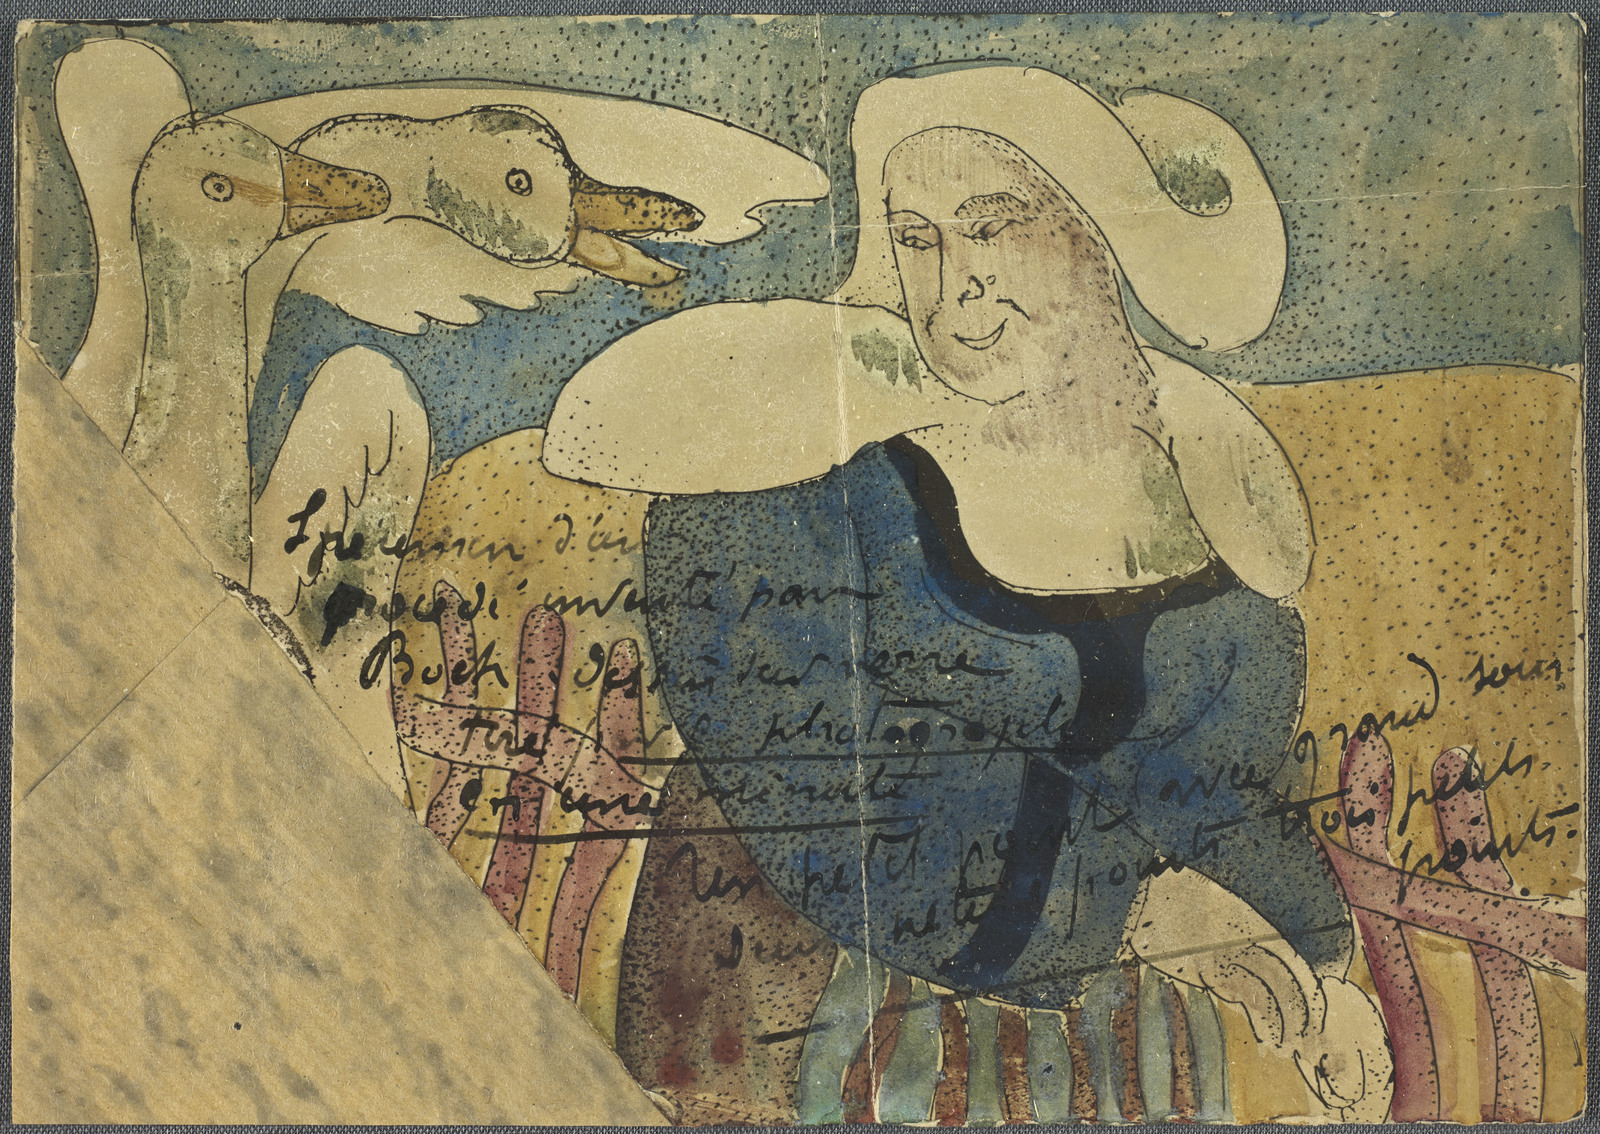 Specimen d'un
procédé inventé par
Boch. dessin sur verre
tiré sur photographi
en une minute
Un petit point (avec grand soin
deux petits points. trois petits
points.